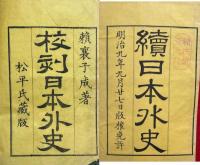 續日本外史
明治九年九月廿七日版權免許
賴襄子成著
校刻日本外史
松平氏藏版